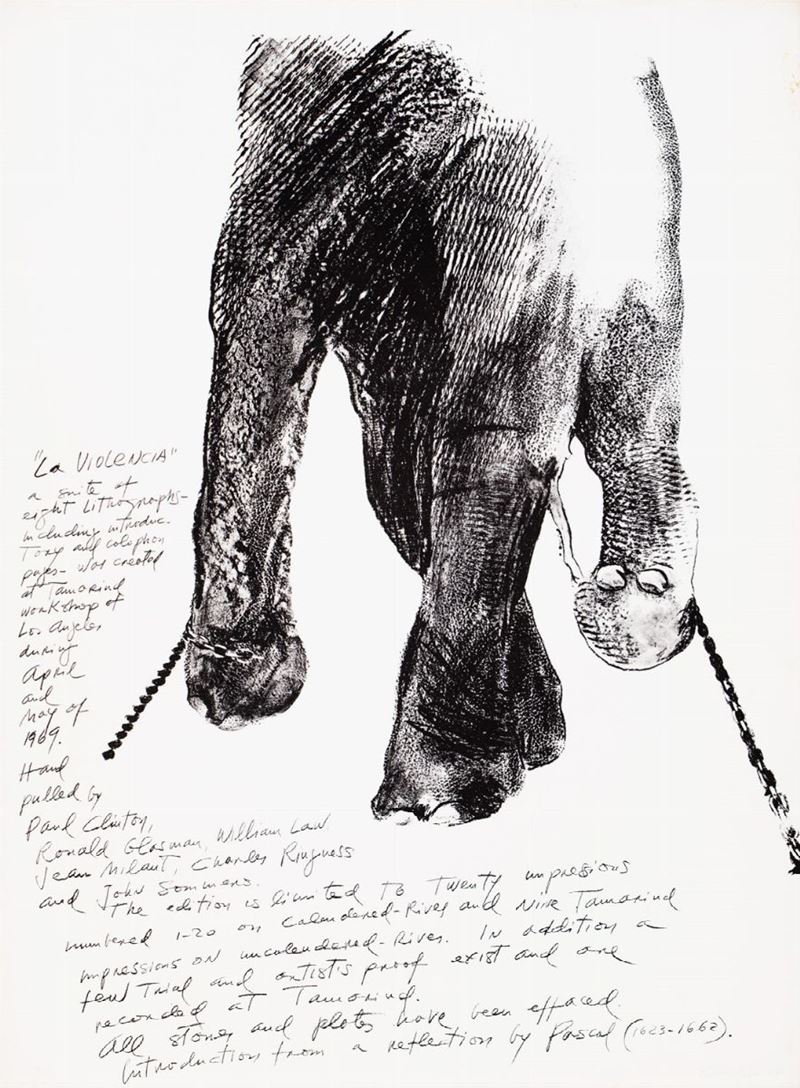 "La VIOLENCIA"
a suite of
eight Lithographs-
including introduc-
Tory and colophon
pages- was created
at Tamarind
workshop of
Los Angeles
during
April
and
May of
1969.
Hand
pulled by
Paul Clinton,
Ronald Glosman, William Law,
Jean Milaut, Charles Ringness
and John Sommers.
The edition is limited To Twenty impressions
numbered 1-20 on Calendered-Rives and Nine Tamarind
impressions on uncalendered-Rives. In addition a
few Trial and artist's proof exist and are
recorded at Tamarind.
All stones and plates have been effaced.
Introduction from a reflection by Pascal (1623-1662).